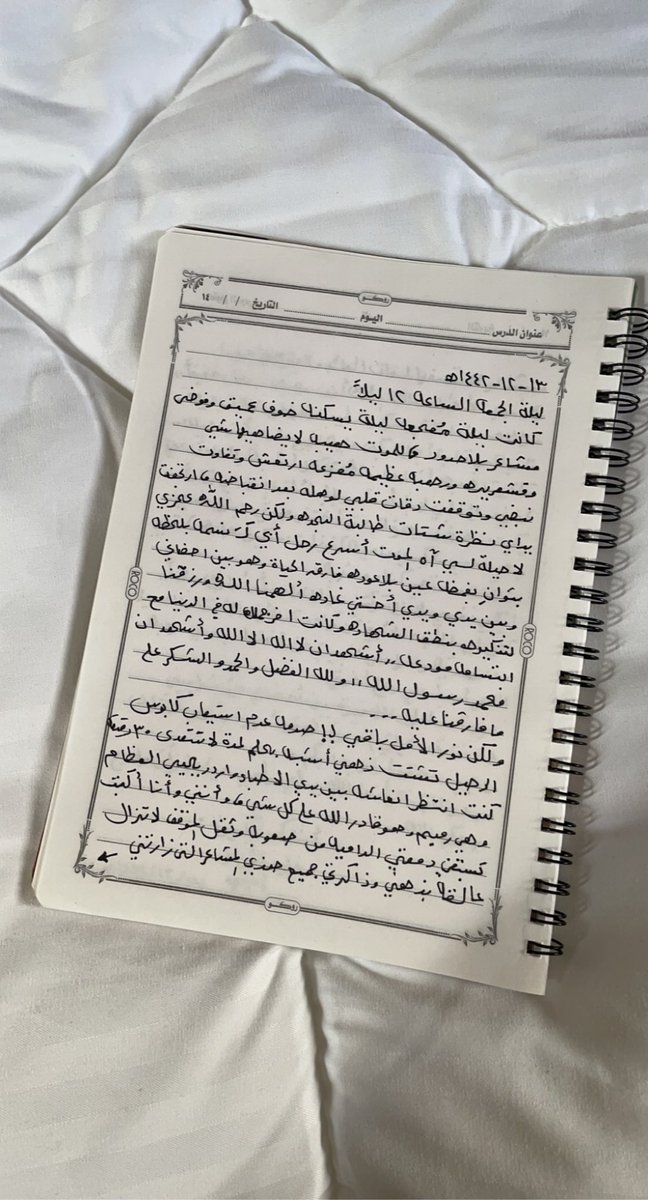 روكو
عنوان الدرس اليوم التاريخ / / ١٤
١٣-١٢-١٤٤٢هـ
ليلة الجمعة الساعة ١٢ ليلاً
كانت ليلة مُفجعه ليلة يسكنها خوف عميق وفوضى
مشاعر بلا حدود فاللموت هيبه لا يضاهيها شيء
وقشعريره ورهبه عظيمه مُفزعه ارتعش وتفاوت
نبضي وتوقفت دقات قلبي لوهله بعد انقباضه ما ارتجفت
يداي بنظرة شتات طالبة النجده ولكن رحم الله عجزي
لا حيلة لي آه الموت أسرع رحل أي كـ نسمه بلحظه
بثوانٍ بغمضة عين بلا عوده فارقه الحياة وهو بين احضاني
وبين يدي ويدي أختي غاده ألهمنا الله ورزقنا
لتذكيره بنطق الشهاده وكانت اخر جمله له في الدنيا مع
ابتسامه مودعه ,, أشهد ان لا اله الا الله وأشهد ان
محمد رسول الله ,, ولله الفضل والحمد والشكر على
ما فارقنا عليه ...
ولكن نور الأمل باقي لـ صدمه عدم استيعاب كابوس
الرحيل تشتت ذهني أشبه بحلم لمدة لا تتعدى ٣٠ دقيقة
كنت انتظر انعاشه بين يدي الاطباء واردد يالحيي العظام
وهي رميم وهو قادر الله على كل شيء وأنني وأنا أكتب
تسبقني دمعتي الداميه من صعوبة وثقل الموقف لا تزال
عالقة بذهني وذاكرتي جميع هذي المشاعر التي زارتني
ROCO
ROCO
روكو